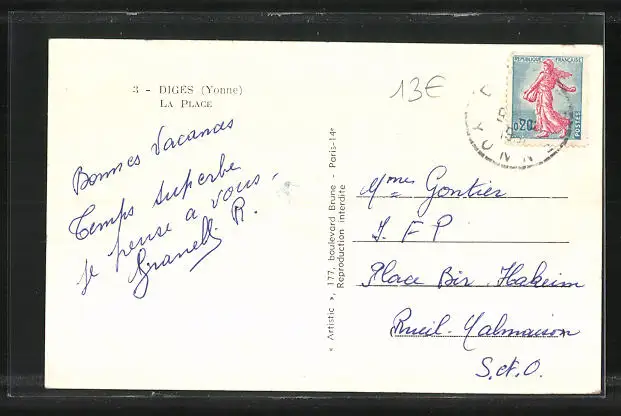 3 - DIGES (Yonne)
LA PLACE
13€
Bonnes Vacances
Temps superbe
je pense a vous,
Granell R.
« Artistic », 177, boulevard Brune - Paris-14e
Reproduction interdite
REPUBLIQUE FRANÇAISE
0,20
POSTES
YONNE
Mme Gontier
I F P
Place Bir Hakeim
Rueil-Malmaison
S.et.O.